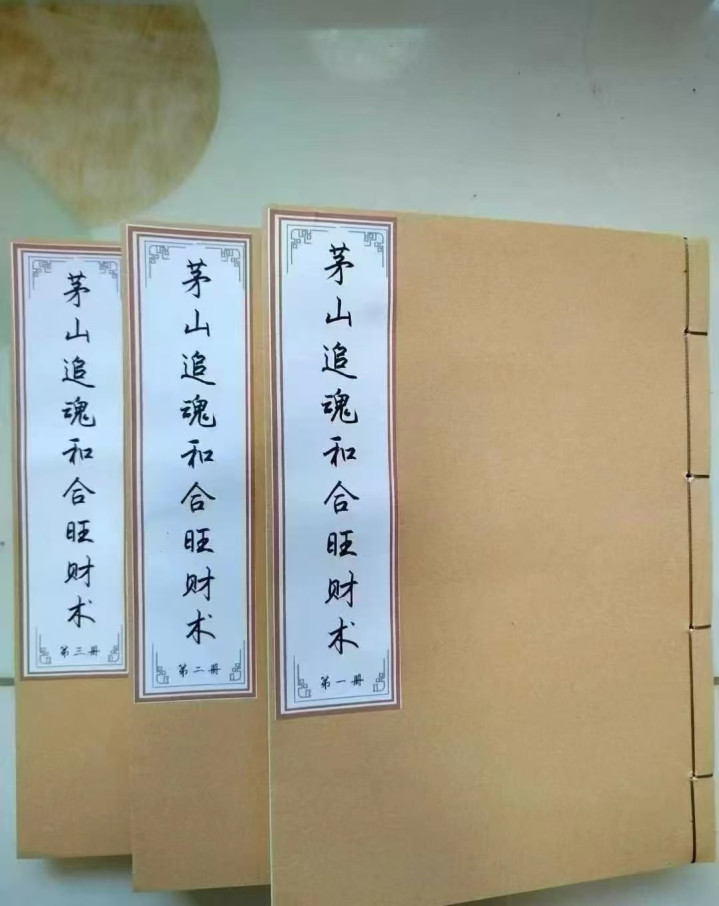 茅山追魂和合旺财术
第一册
茅山追魂和合旺财术
第二册
茅山追魂和合旺财术
第三册